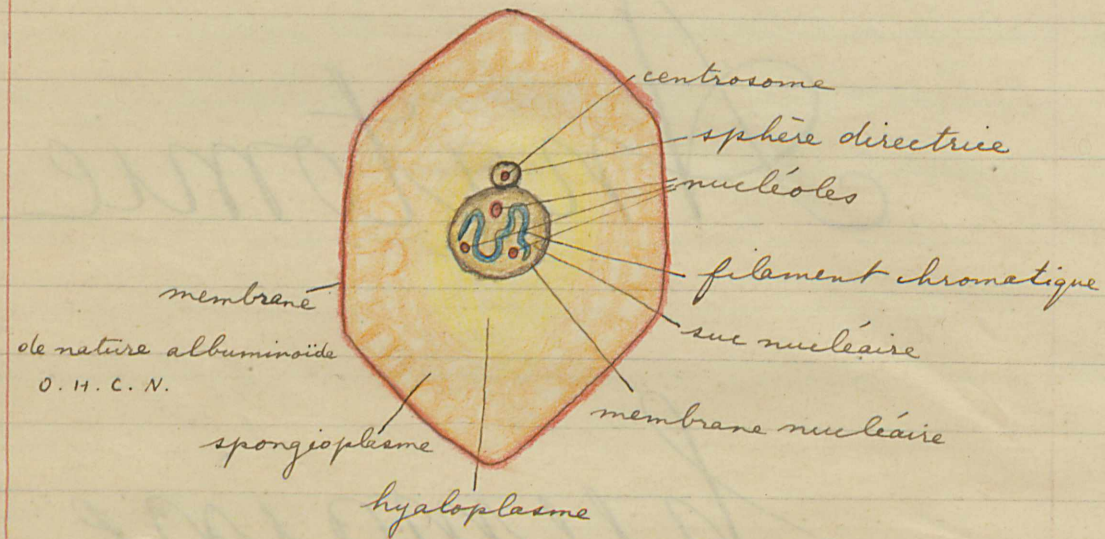 centrosome
sphère directrice
nucléoles
filament chromatique
suc nucléaire
membrane nucléaire
membrane
de nature albuminoïde
O. H. C. N.
spongioplasme
hyaloplasme